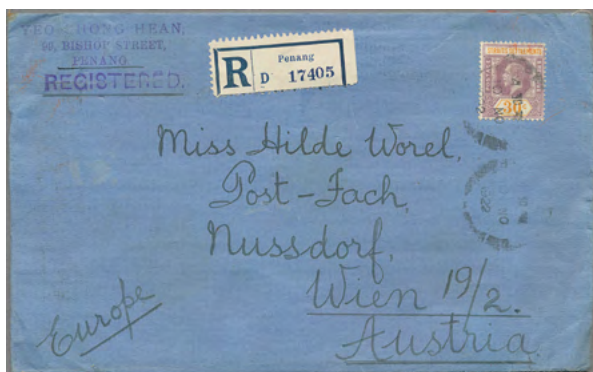 YEO CHONG HEAN,
BISHOP STREET,
PENANG
REGISTERED.
R
Penang
D 17405
30c
Miss Hilde Worel,
Post-Fach,
Nussdorf,
Wien 19/2.
Austria
Europe